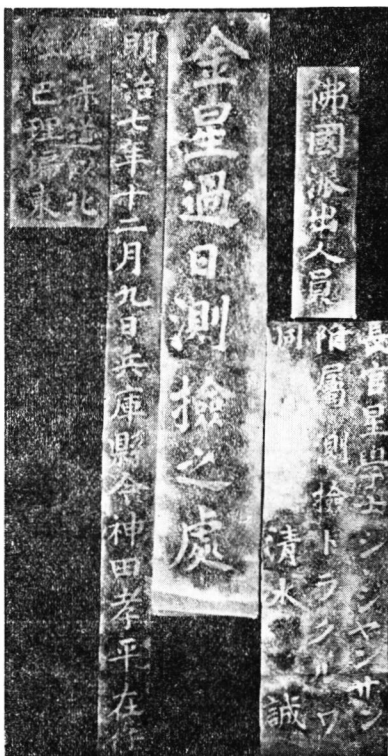 佛國派出人員
長官星學士シ シヤンサン
附屬測檢ドラクルワ
同 清水 誠
金星過日測檢之處
明治七年十二月九日兵庫縣令神田孝平在任
赤道以北
巴理偏東